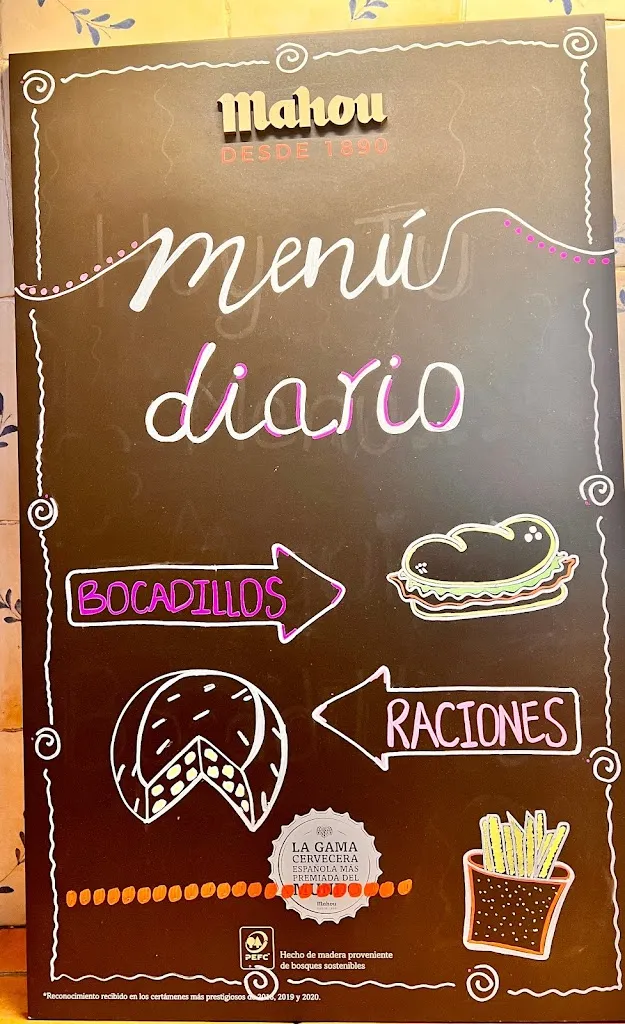 Mahou
DESDE 1890
menú
diario
BOCADILLOS
RACIONES
LA GAMA
CERVECERA
ESPAÑOLA MÁS
PREMIADA DEL
MUNDO*
Mahou
PEFC
Hecho de madera proveniente
de bosques sostenibles
*Reconocimiento recibido en los certámenes más prestigiosos de 2018, 2019 y 2020.